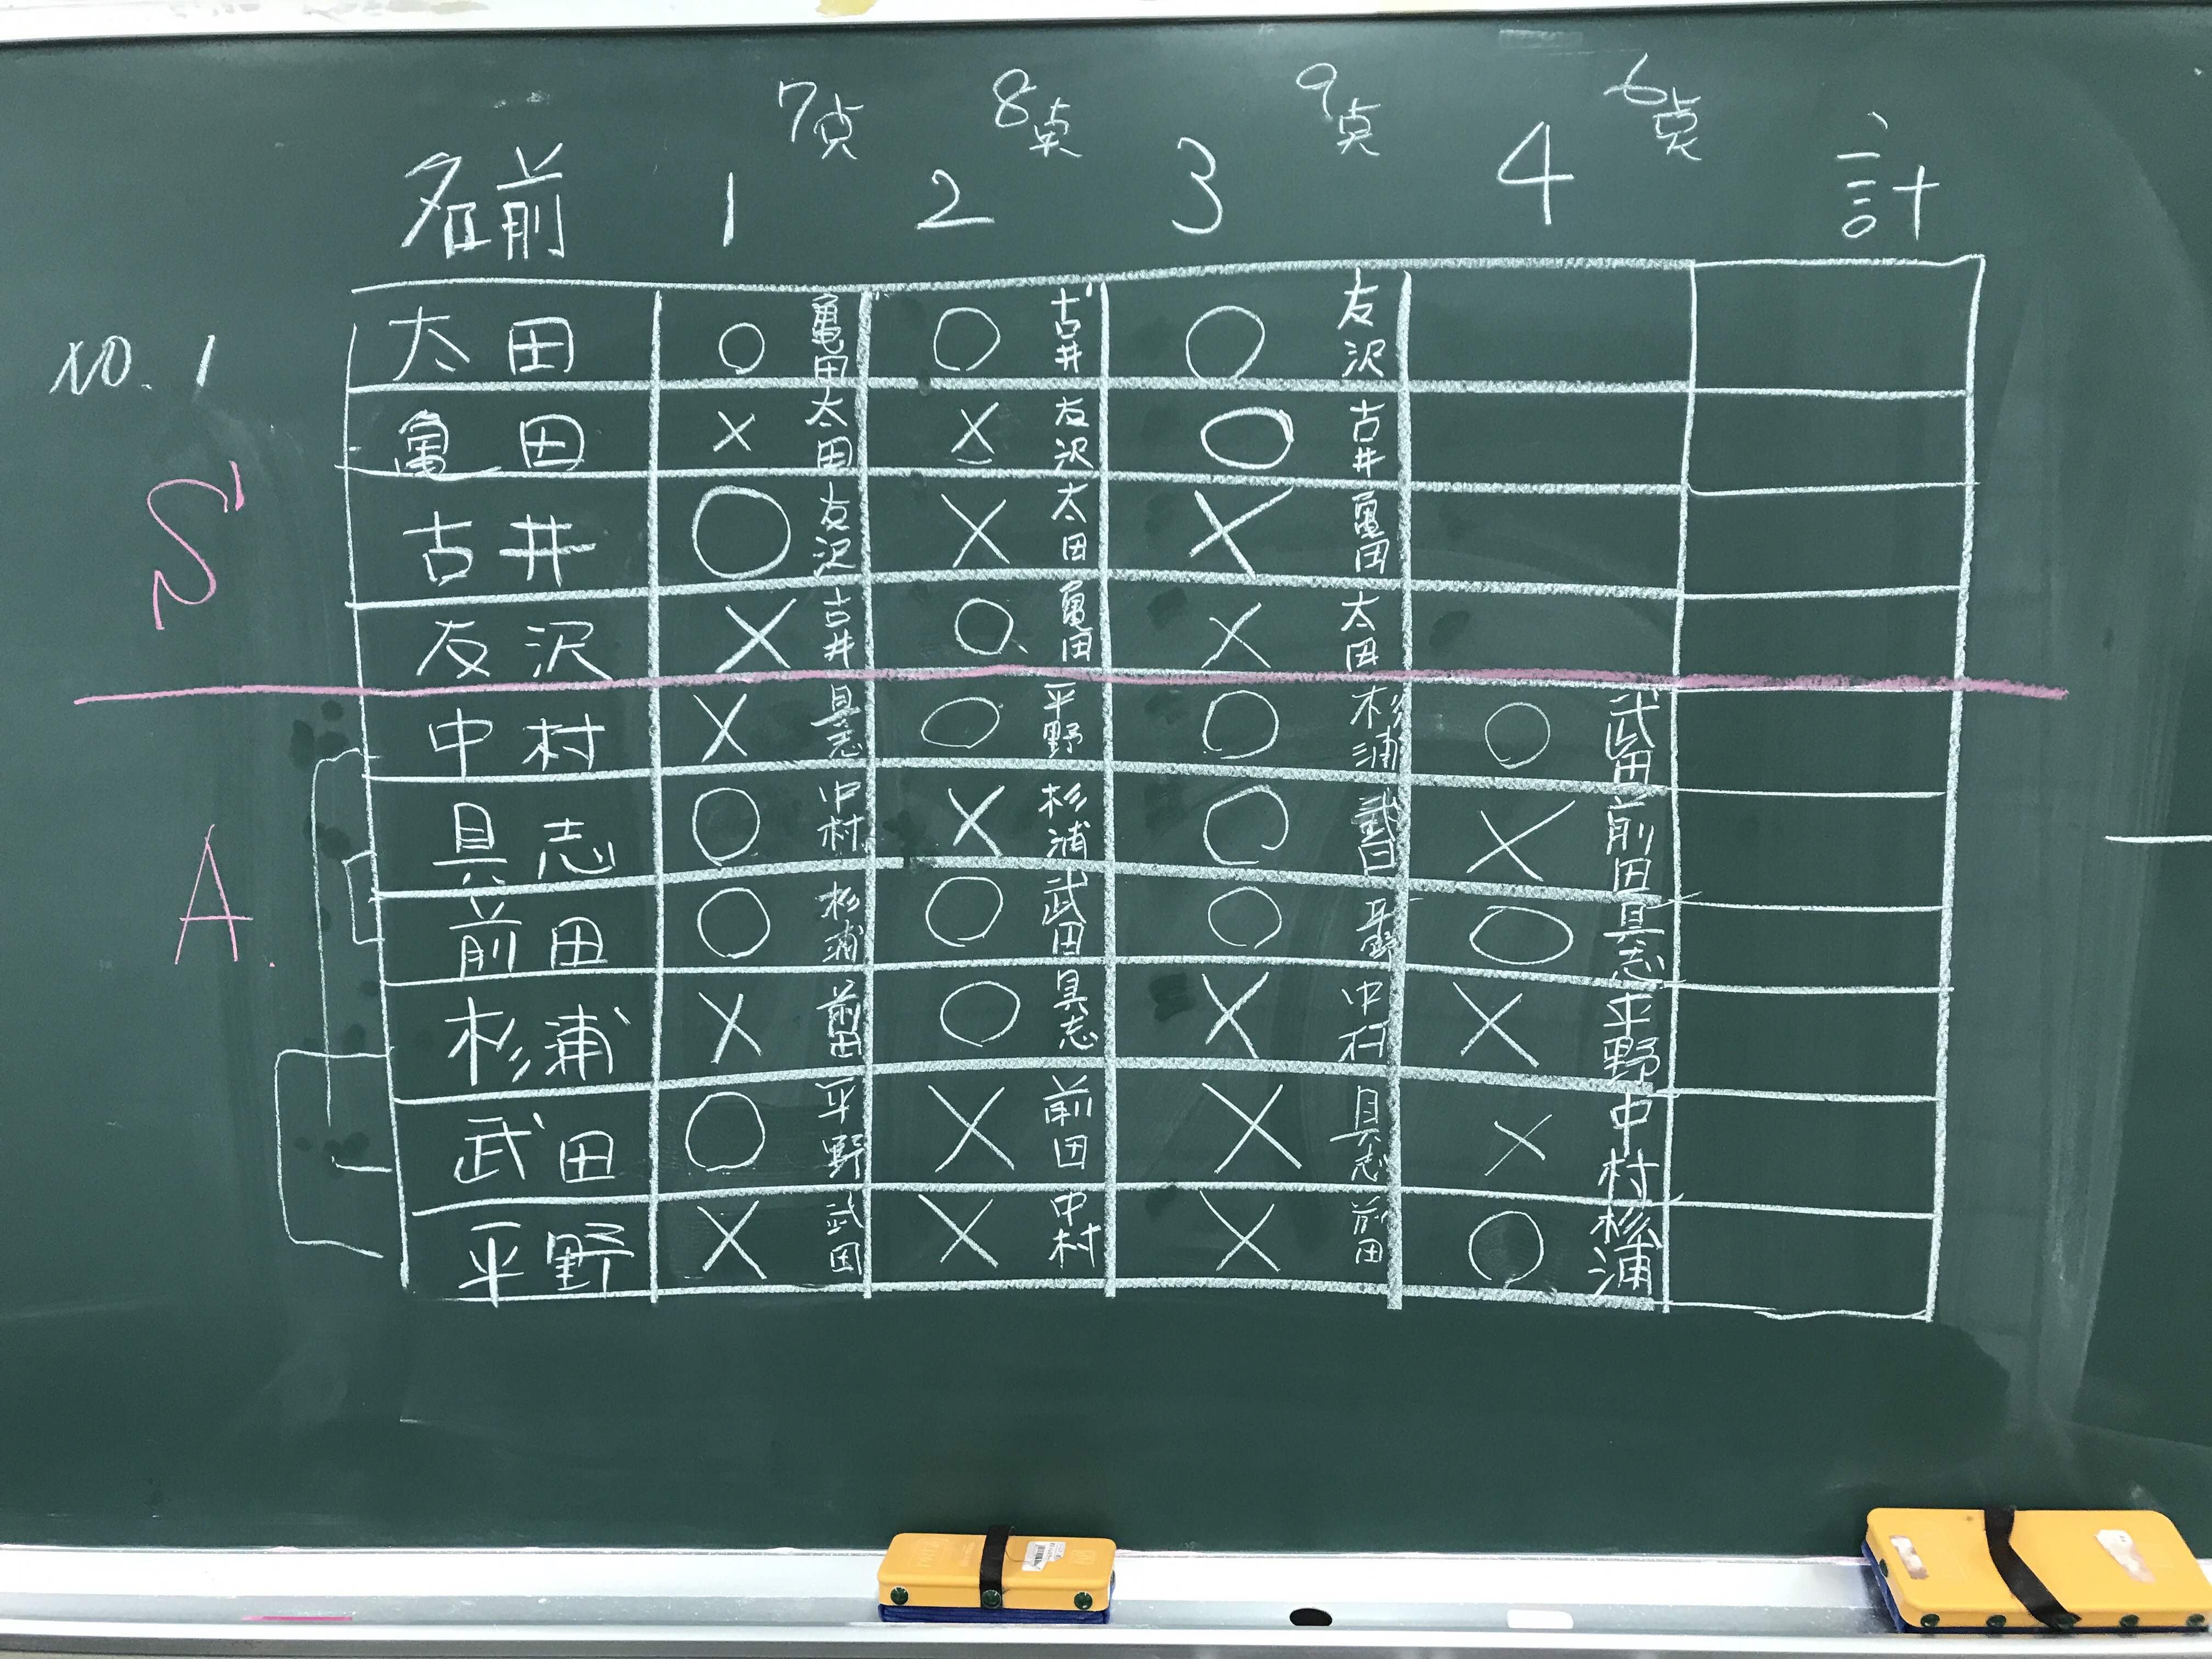 7点 8点 9点 6点
名前 1 2 3 4 計
NO. 1
S
A.
太田 ○ 亀田 ○ 古井 ○ 友沢
亀田 × 太田 × 友沢 ○ 古井
古井 ○ 友沢 × 太田 × 亀田
友沢 × 古井 ○ 亀田 × 太田
中村 × 具志 ○ 平野 ○ 杉浦 ○ 武田
具志 ○ 中村 × 杉浦 ○ 武田 × 前田
前田 ○ 杉浦 ○ 武田 ○ 平野 ○ 具志
杉浦 × 前田 ○ 具志 × 中村 × 平野
武田 ○ 平野 × 前田 × 具志 × 中村
平野 × 武田 × 中村 × 前田 ○ 杉浦